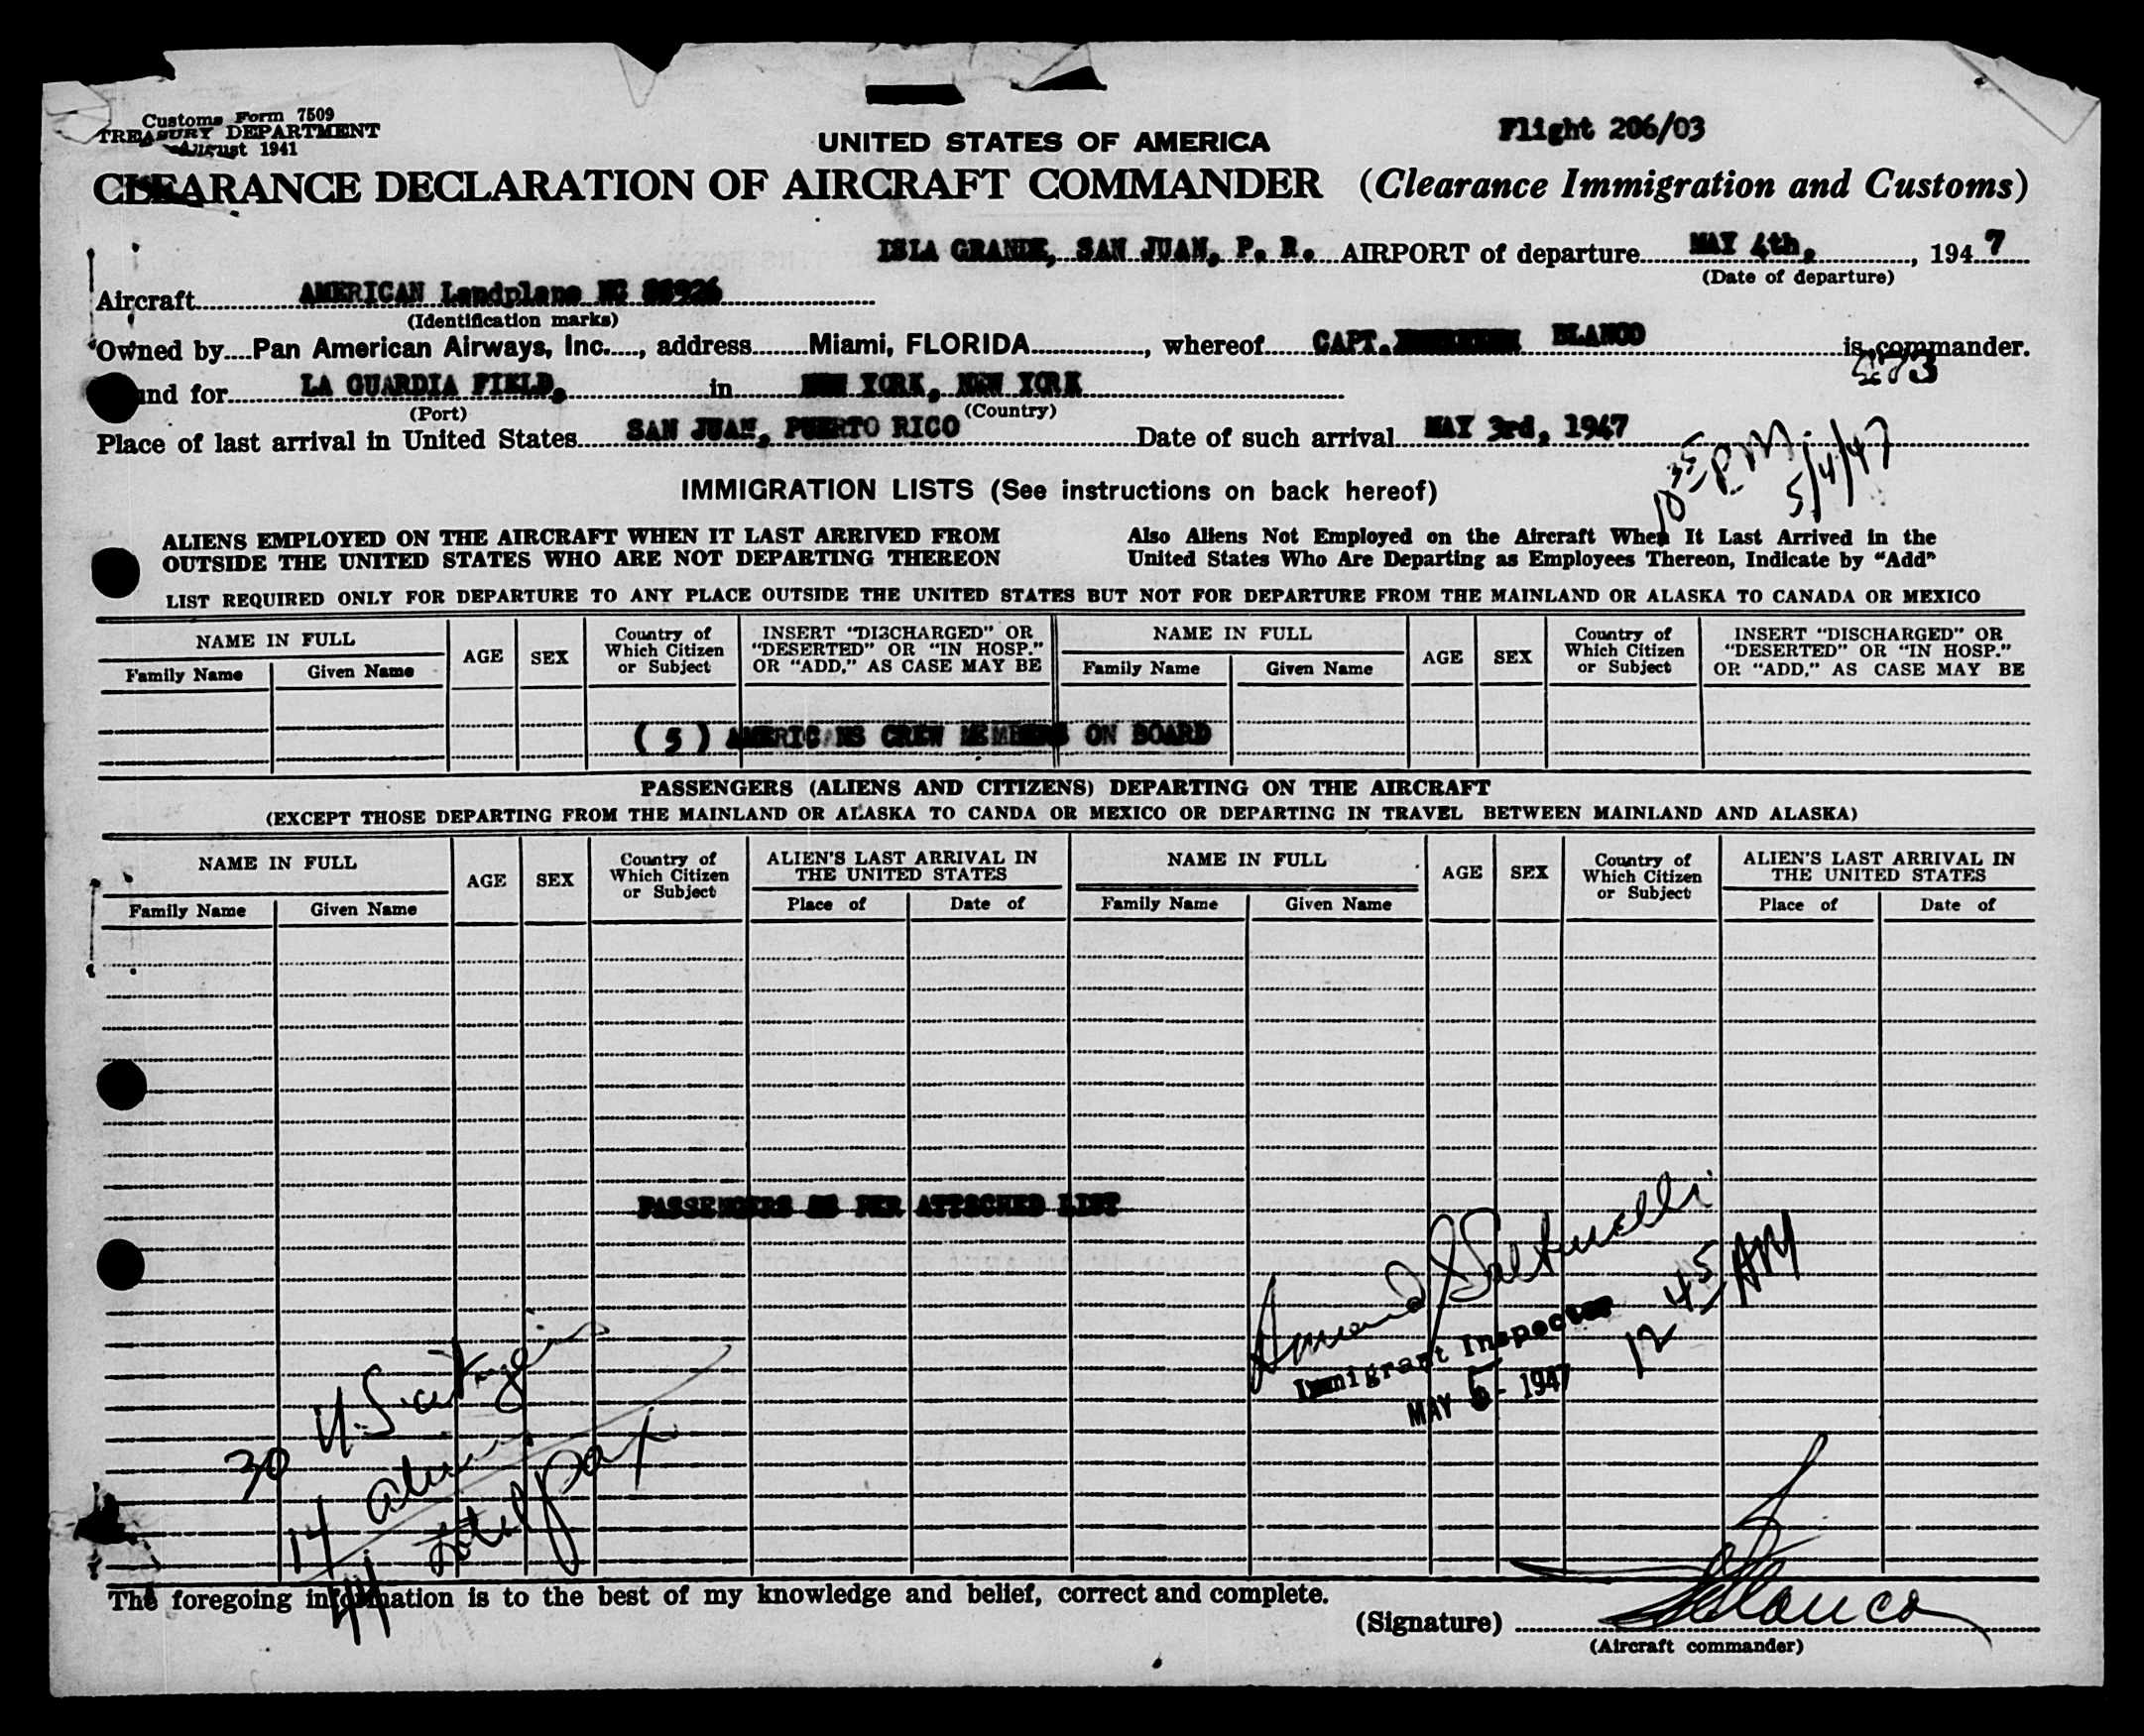 Customs Form 7509
TREASURY DEPARTMENT
August 1941
UNITED STATES OF AMERICA
Flight 206/03
CLEARANCE DECLARATION OF AIRCRAFT COMMANDER (Clearance Immigration and Customs)
ISLA GRANDE, SAN JUAN, P. R. AIRPORT of departure MAY 4th, , 1947
(Date of departure)
Aircraft AMERICAN Landplane NC
(Identification marks)
Owned by Pan American Airways, Inc. , address Miami, FLORIDA , whereof CAPT. BLANCO is commander.
und for LA GUARDIA FIELD, in NEW YORK, NEW YORK
(Port) (Country)
Place of last arrival in United States SAN JUAN, PUERTO RICO Date of such arrival MAY 3rd, 1947
10 35 P.M. 5/4/47
IMMIGRATION LISTS (See instructions on back hereof)
ALIENS EMPLOYED ON THE AIRCRAFT WHEN IT LAST ARRIVED FROM
OUTSIDE THE UNITED STATES WHO ARE NOT DEPARTING THEREON
Also Aliens Not Employed on the Aircraft When It Last Arrived in the
United States Who Are Departing as Employees Thereon, Indicate by "Add"
LIST REQUIRED ONLY FOR DEPARTURE TO ANY PLACE OUTSIDE THE UNITED STATES BUT NOT FOR DEPARTURE FROM THE MAINLAND OR ALASKA TO CANADA OR MEXICO
NAME IN FULL
Family Name Given Name
AGE
SEX
Country of
Which Citizen
or Subject
INSERT "DISCHARGED" OR
"DESERTED" OR "IN HOSP."
OR "ADD," AS CASE MAY BE
NAME IN FULL
Family Name Given Name
AGE
SEX
Country of
Which Citizen
or Subject
INSERT "DISCHARGED" OR
"DESERTED" OR "IN HOSP."
OR "ADD," AS CASE MAY BE
( 5 ) AMERICANS CREW MEMBERS ON BOARD
PASSENGERS (ALIENS AND CITIZENS) DEPARTING ON THE AIRCRAFT
(EXCEPT THOSE DEPARTING FROM THE MAINLAND OR ALASKA TO CANDA OR MEXICO OR DEPARTING IN TRAVEL BETWEEN MAINLAND AND ALASKA)
NAME IN FULL
Family Name Given Name
AGE
SEX
Country of
Which Citizen
or Subject
ALIEN'S LAST ARRIVAL IN
THE UNITED STATES
Place of Date of
NAME IN FULL
Family Name Given Name
AGE
SEX
Country of
Which Citizen
or Subject
ALIEN'S LAST ARRIVAL IN
THE UNITED STATES
Place of Date of
PASSENGERS AS PER ATTACHED LIST
Immigrant Inspector
MAY 5 - 1947
12 45 AM
30 U.S.
14 aliens
44 total pax
The foregoing information is to the best of my knowledge and belief, correct and complete.
(Signature) Blanco
(Aircraft commander)